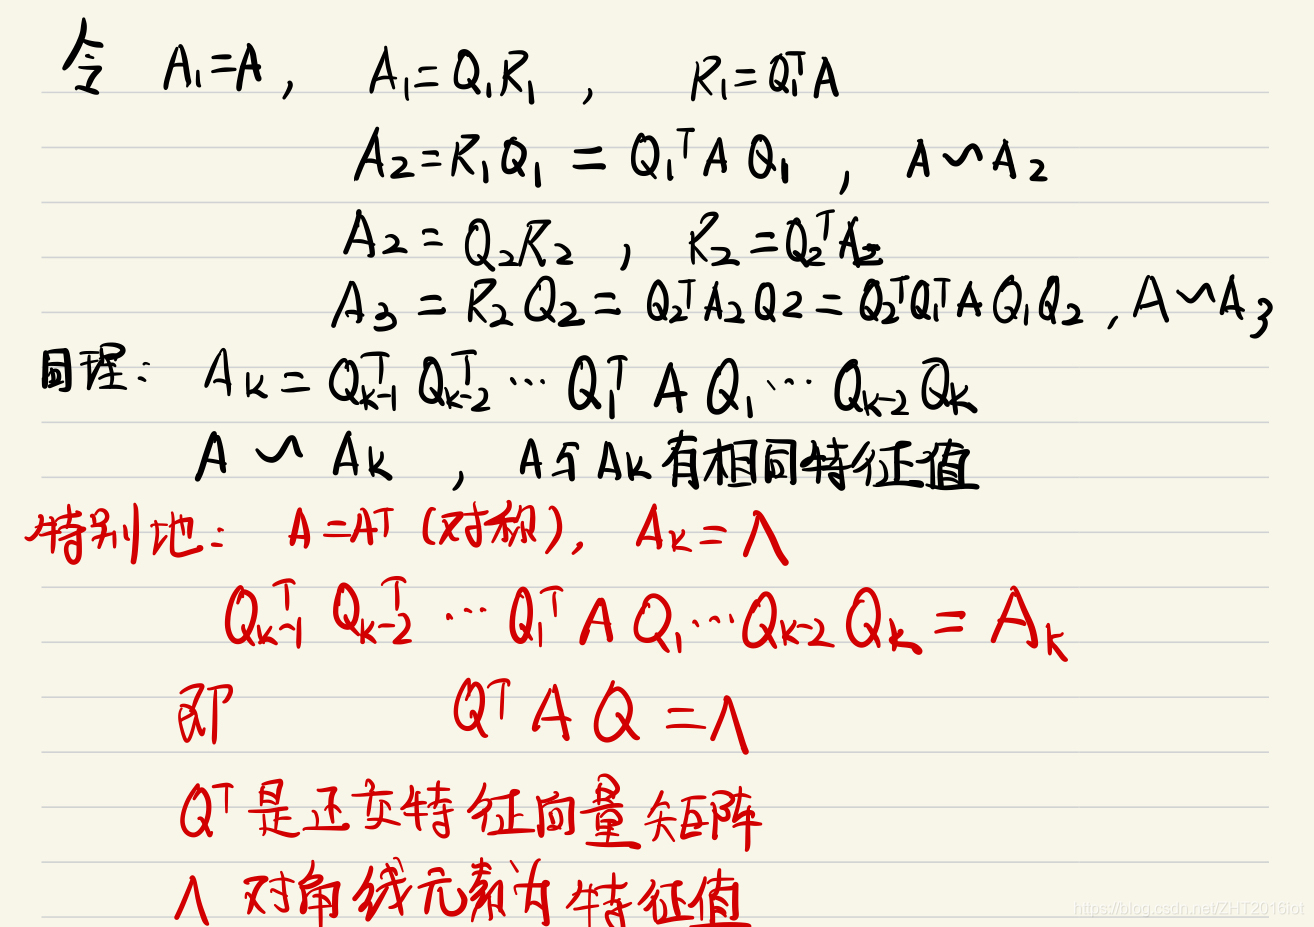 令 A₁=A, A₁=Q₁R₁, R₁=Q₁ᵀA
A₂=R₁Q₁=Q₁ᵀAQ₁, A∽A₂
A₂=Q₂R₂, R₂=Q₂ᵀA₂
A₃=R₂Q₂=Q₂ᵀA₂Q2=Q₂ᵀQ₁ᵀAQ₁Q₂, A∽A₃
同理: Aₖ=Qₖ₋₁ᵀQₖ₋₂ᵀ…Q₁ᵀAQ₁…Qₖ₋₂Qₖ
A∽Aₖ, A与Aₖ有相同特征值
特别地: A=Aᵀ(对称), Aₖ=Λ
Qₖ₋₁ᵀQₖ₋₂ᵀ…Q₁ᵀAQ₁…Qₖ₋₂Qₖ=Aₖ
即 QᵀAQ=Λ
Qᵀ是正交特征向量矩阵
Λ对角线元素为特征值
https://blog.csdn.net/ZHT2016iot